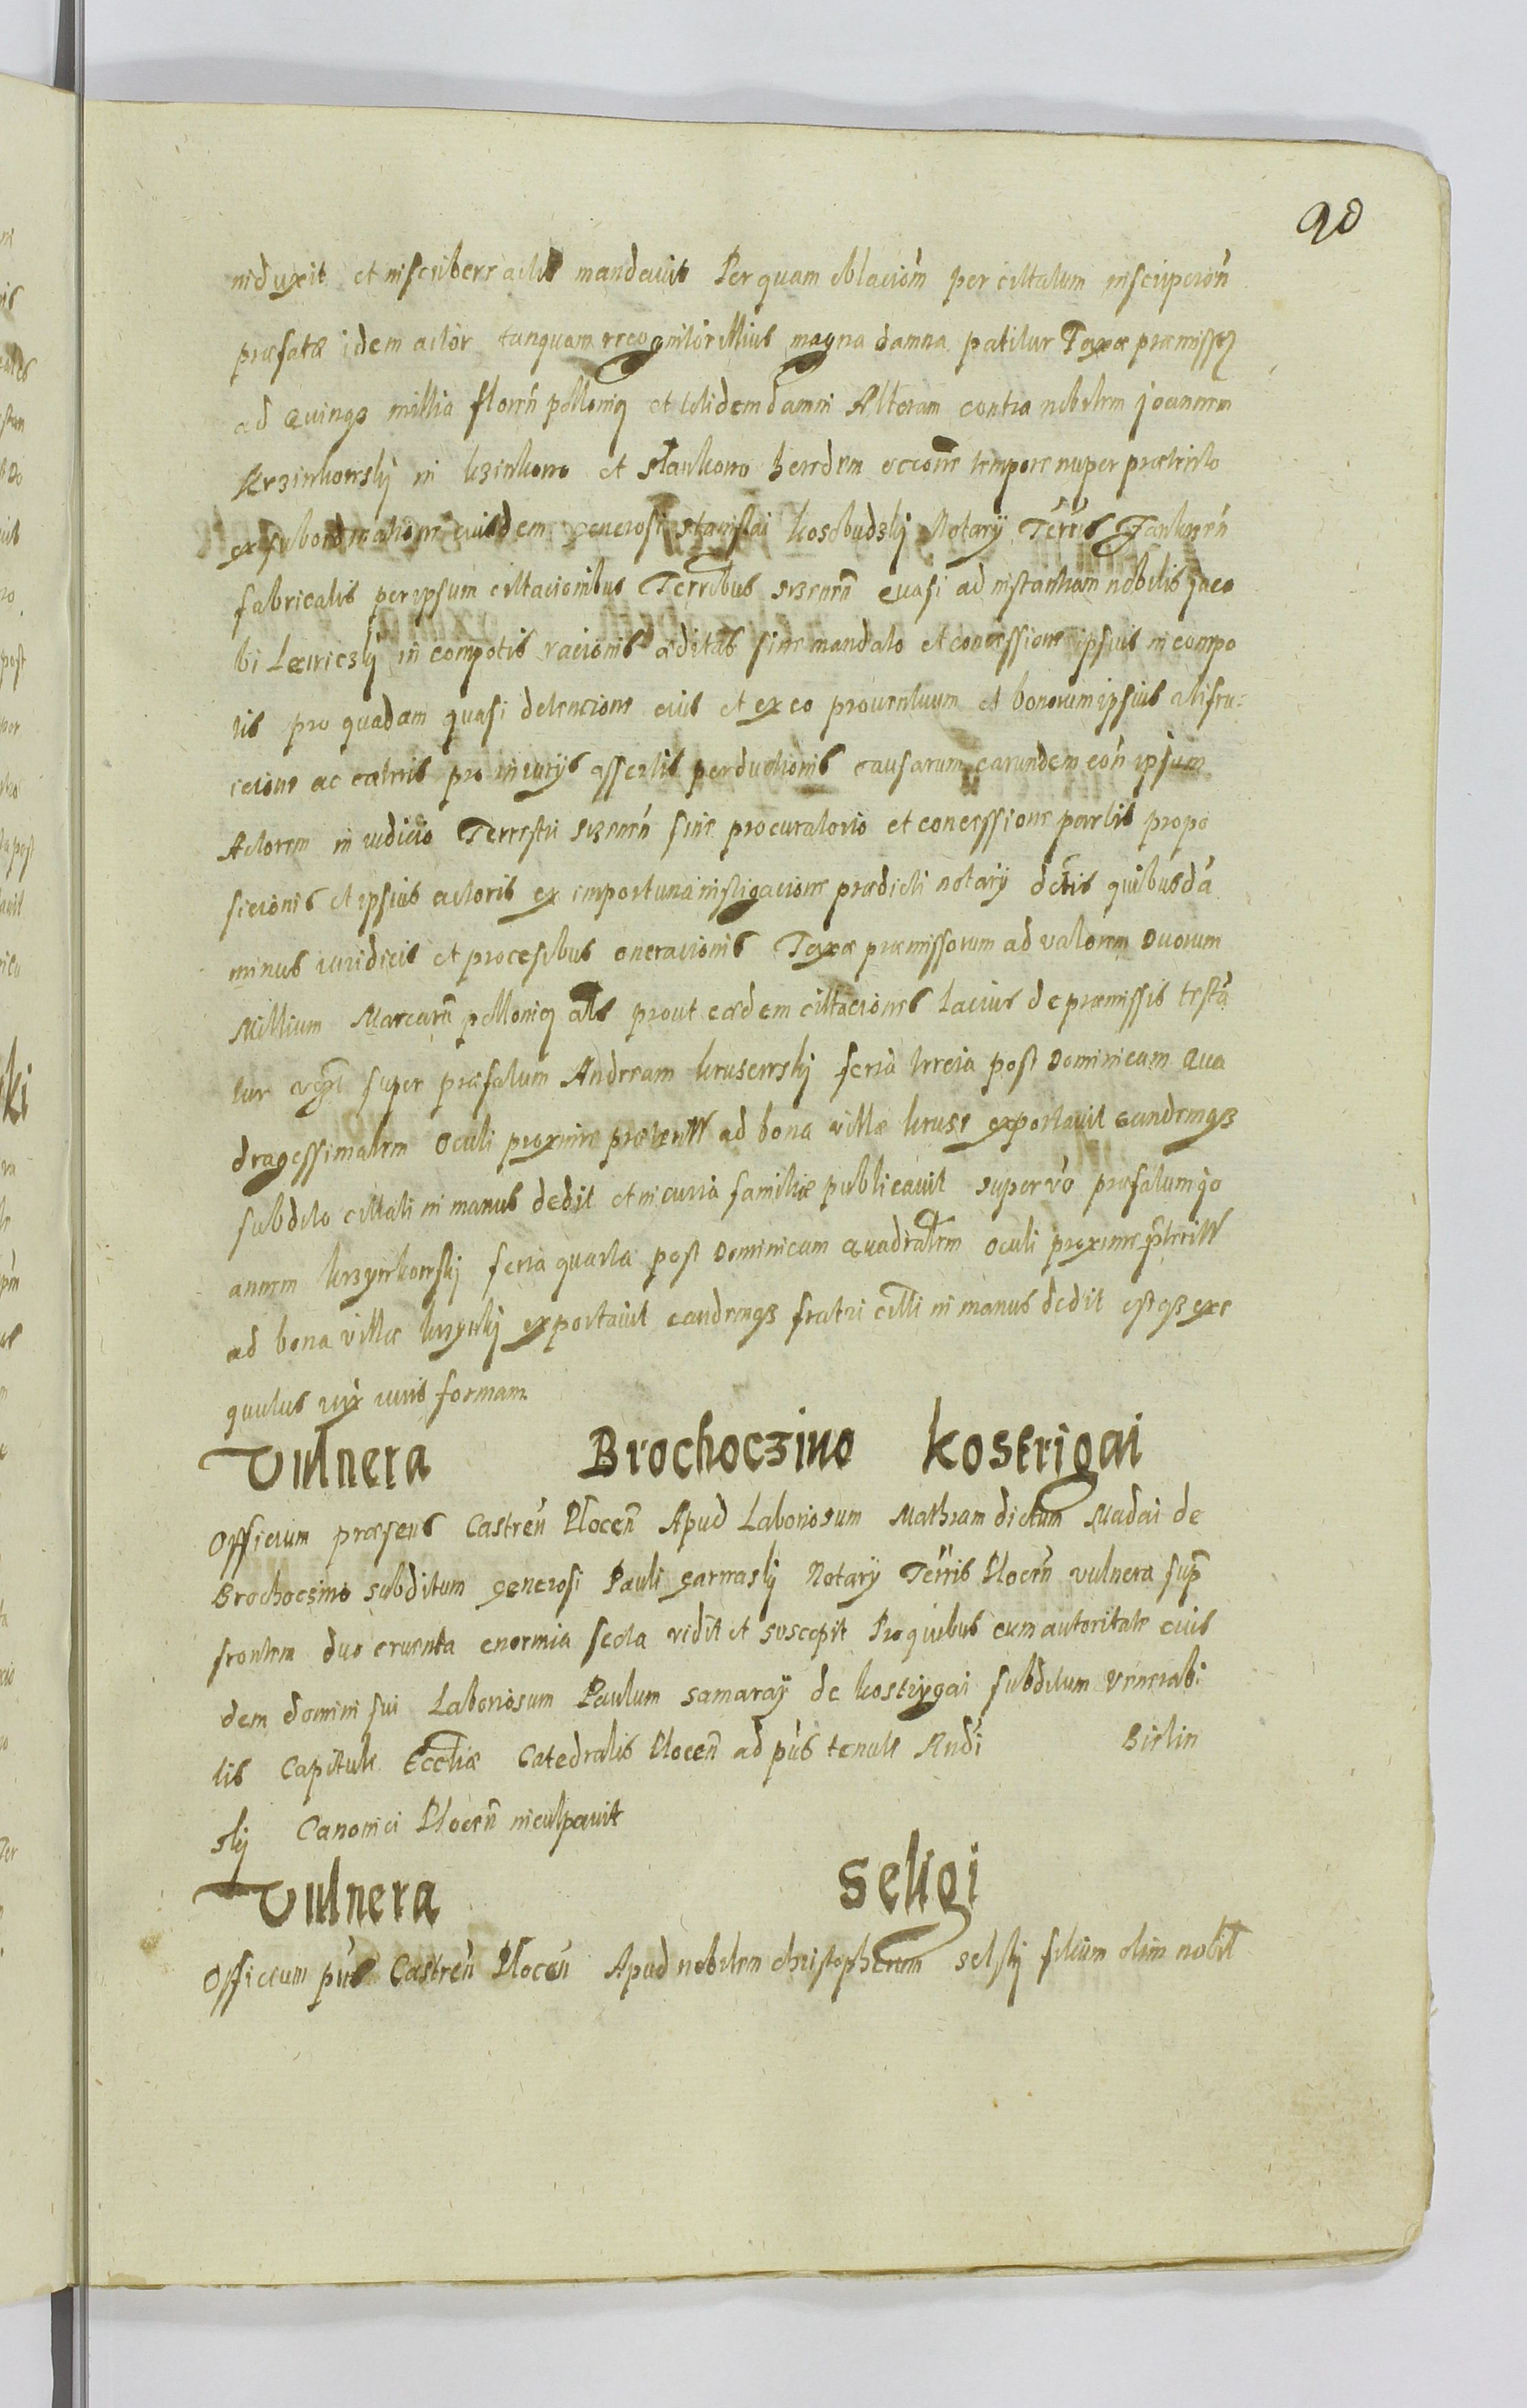 90
induxit et inscribere actis mandavit Per quam oblacion̄ per citatum inscripcion̄
præfatæ idem actor tanquam recognitor illius magna damna patitur Taxæ præmissoꝝ
ad quinqꝫ millia floren̄ pollonicꝫ et totidem damni Alteram contra nobilem joannem
Krzinkowskÿ in kzinkowo et stankowo heredem occione tempore nuper præterito
ex subordinatione eiusdem generosi stanislai kosobudskÿ Notarÿ Terris
fabricatis per ipsum citacionibus Terribus quasi ad instantiam nobilis jaco
bi in compotis racionis æditas sine mandato et concessione ipsius in compo
tis pro quadam quasi detencione eius et ex eo proventuum et bonorum ipsius
ac cæteris pro iniurÿs assertis perductionis causarum earundem con̄ ipsum
Actorem in iudicio Terrestri sine procuratorio et concessione partis propo
sicionis et ipsius actoris ex importuna instigacione prædicti notarÿ quibusdā
minus iuridicis et processibus oneracionis Taxæ præmissorum ad valorem Duorum
Millium Marcarū pollonicꝫ als prout eædem citaciones lacius de præmissis testā
tur super præfatum Andream krusewskÿ feria tercia post Dominicam Qua
dragessimalem Oculi proxime præterit ad bona villæ kruse exportavit eandemqꝫ
subdito citati in manus dedit et in curia familiæ publicavit super vo præfatum jo
annem krzynkowskÿ feria quarta post Dominicam Quadralem Oculi proxime pterit
ad bona villæ exportavit eandemqꝫ fratri citti in manus dedit estqꝫ exe
quutus iux iuris formam
Vulnera Brochoczino kostrigai
Officium præsens Castren̄ Plocen̄ Apud Laboriosum Mathiam dictum Madai de
Brochocsino subditum generosi Pauli garwaskÿ Notarÿ Terris Plocen̄ vulnera sup
frontem duo cruenta enormia secta vidit et suscepit Pro quibus cum autoritate eius
dem domini sui Laboriosum Paulum samaraÿ de kostrygai subditum Venerabi
lis Capituli Eccliæ Catedralis Plocen̄ ad pns tenute Andi Bielin
skÿ Canonici Plocen̄ inculpavit
Vulnera Seligi
Officium pns Castren̄ Plocen̄ Apud nobilem christopherum selskÿ filium olim nobil